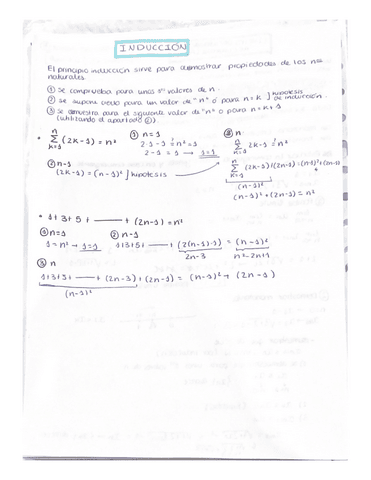 INDUCCIÓN
El principio inducción sirve para demostrar propiedades de los nos
naturales.
① se comprueba para unos nos valores de n.
② se supone cierto para un valor de "n" ó para n=k ] hipótesis de inducción.
③ se demuestra para el siguiente valor de "n" o para n=k+1
(utilizando el apartado ②).
* n Σ k=1 (2k-1) = n²
① n=1
2·1-1 = n² = 1
2-1 = 1 → 1=1
② n-1
(2k-1) = (n-1)² ] hipótesis
③ n.
n Σ k=1 2k-1 = n²
(n-1)²
(n-1)² + (2n-1) = n²
* 1+3+5+ —— + (2n-1) = n²
① n=1
1 = n² → 1=1
② n-1
1+3+5+ —— + (2(n-1)-1) = (n-1)²
2n-3 n²-2n+1
③ n
1+3+5+ —— + (2n-3) + (2n-1) = (n-1)² + (2n-1)
(n-1)²